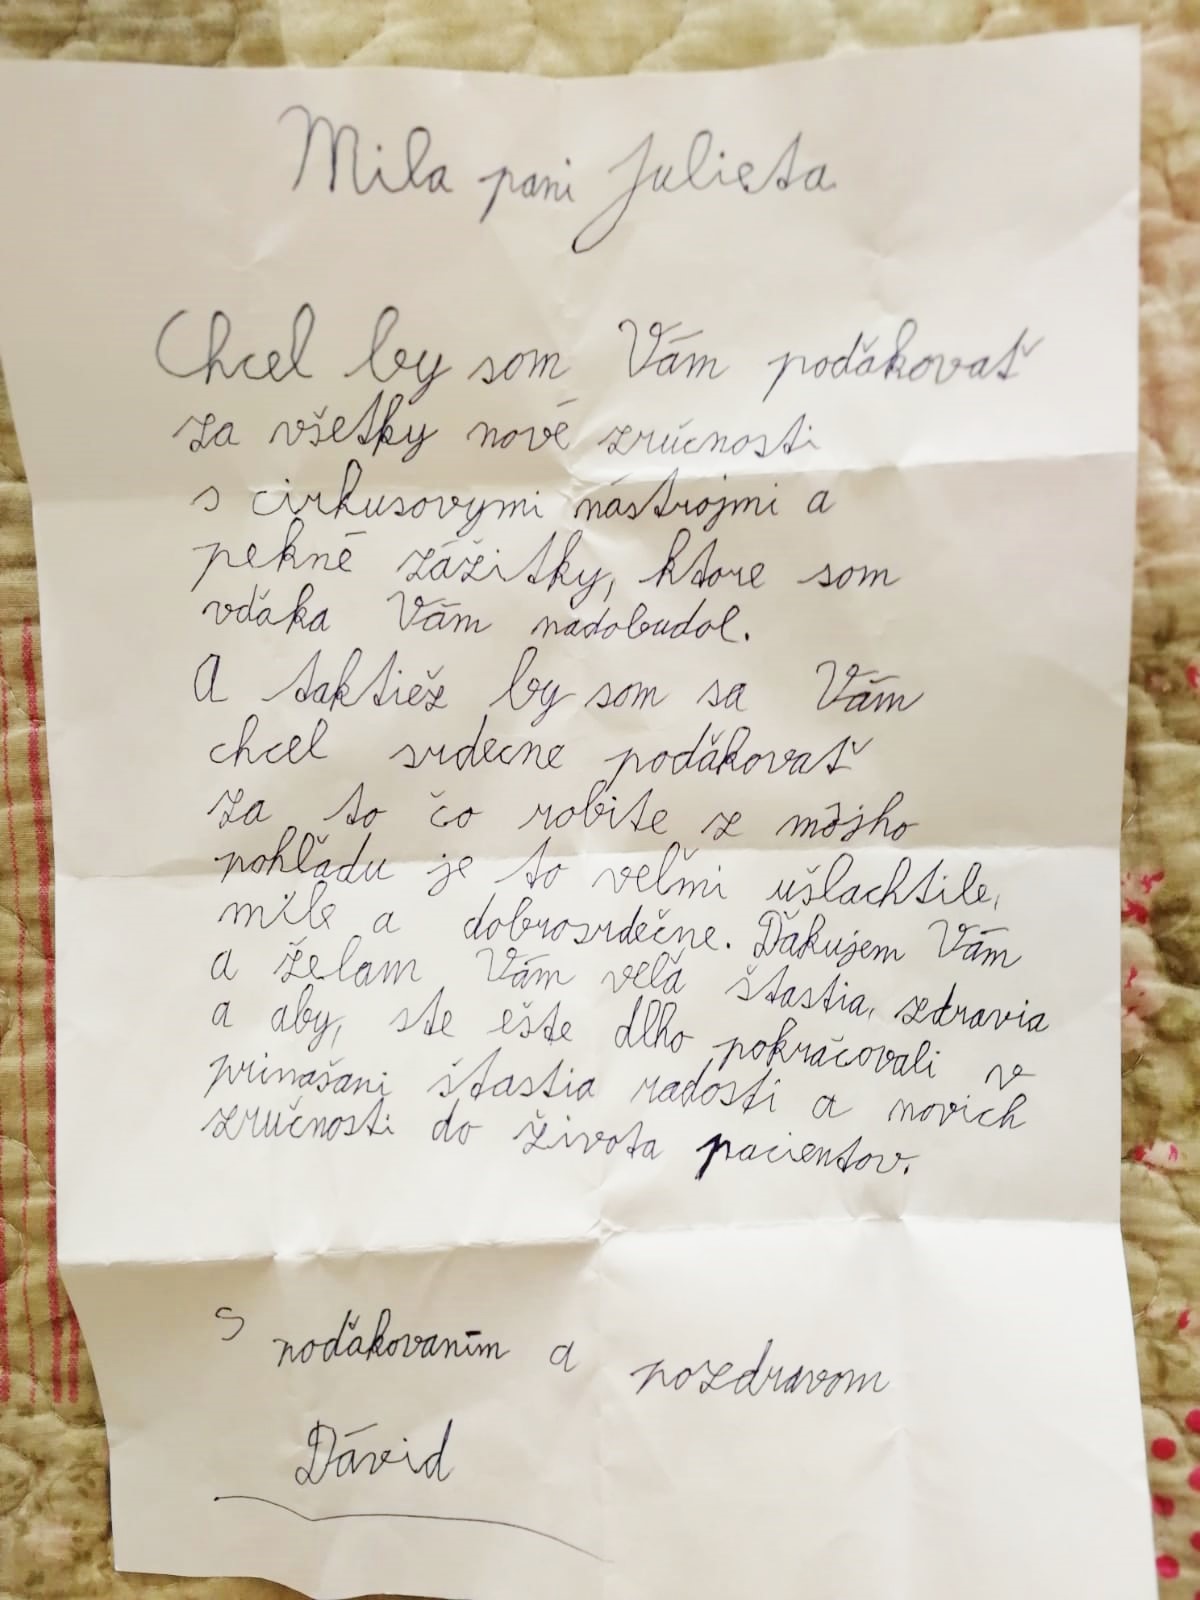 Mila pani Julieta
Chcel by som Vám poďakovať
za všetky nové zrúcnosti
s cirkusovymi nástrojmi a
pekné zážitky, ktore som
vďaka Vám nadobudol.
A taktiež by som sa Vám
chcel srdecne poďakovať
za to čo robite z môjho
pohľadu je to veľmi ušlachtile,
míle a dobrosrdečne. Ďakujem Vám
a želam Vám veľa štastia, zdravia
a aby, ste ešte dlho pokráčovali v
prinašani štastia radosti a novich
zručnosti do života pacientov.
S poďakovaním a pozdravom
Dávid